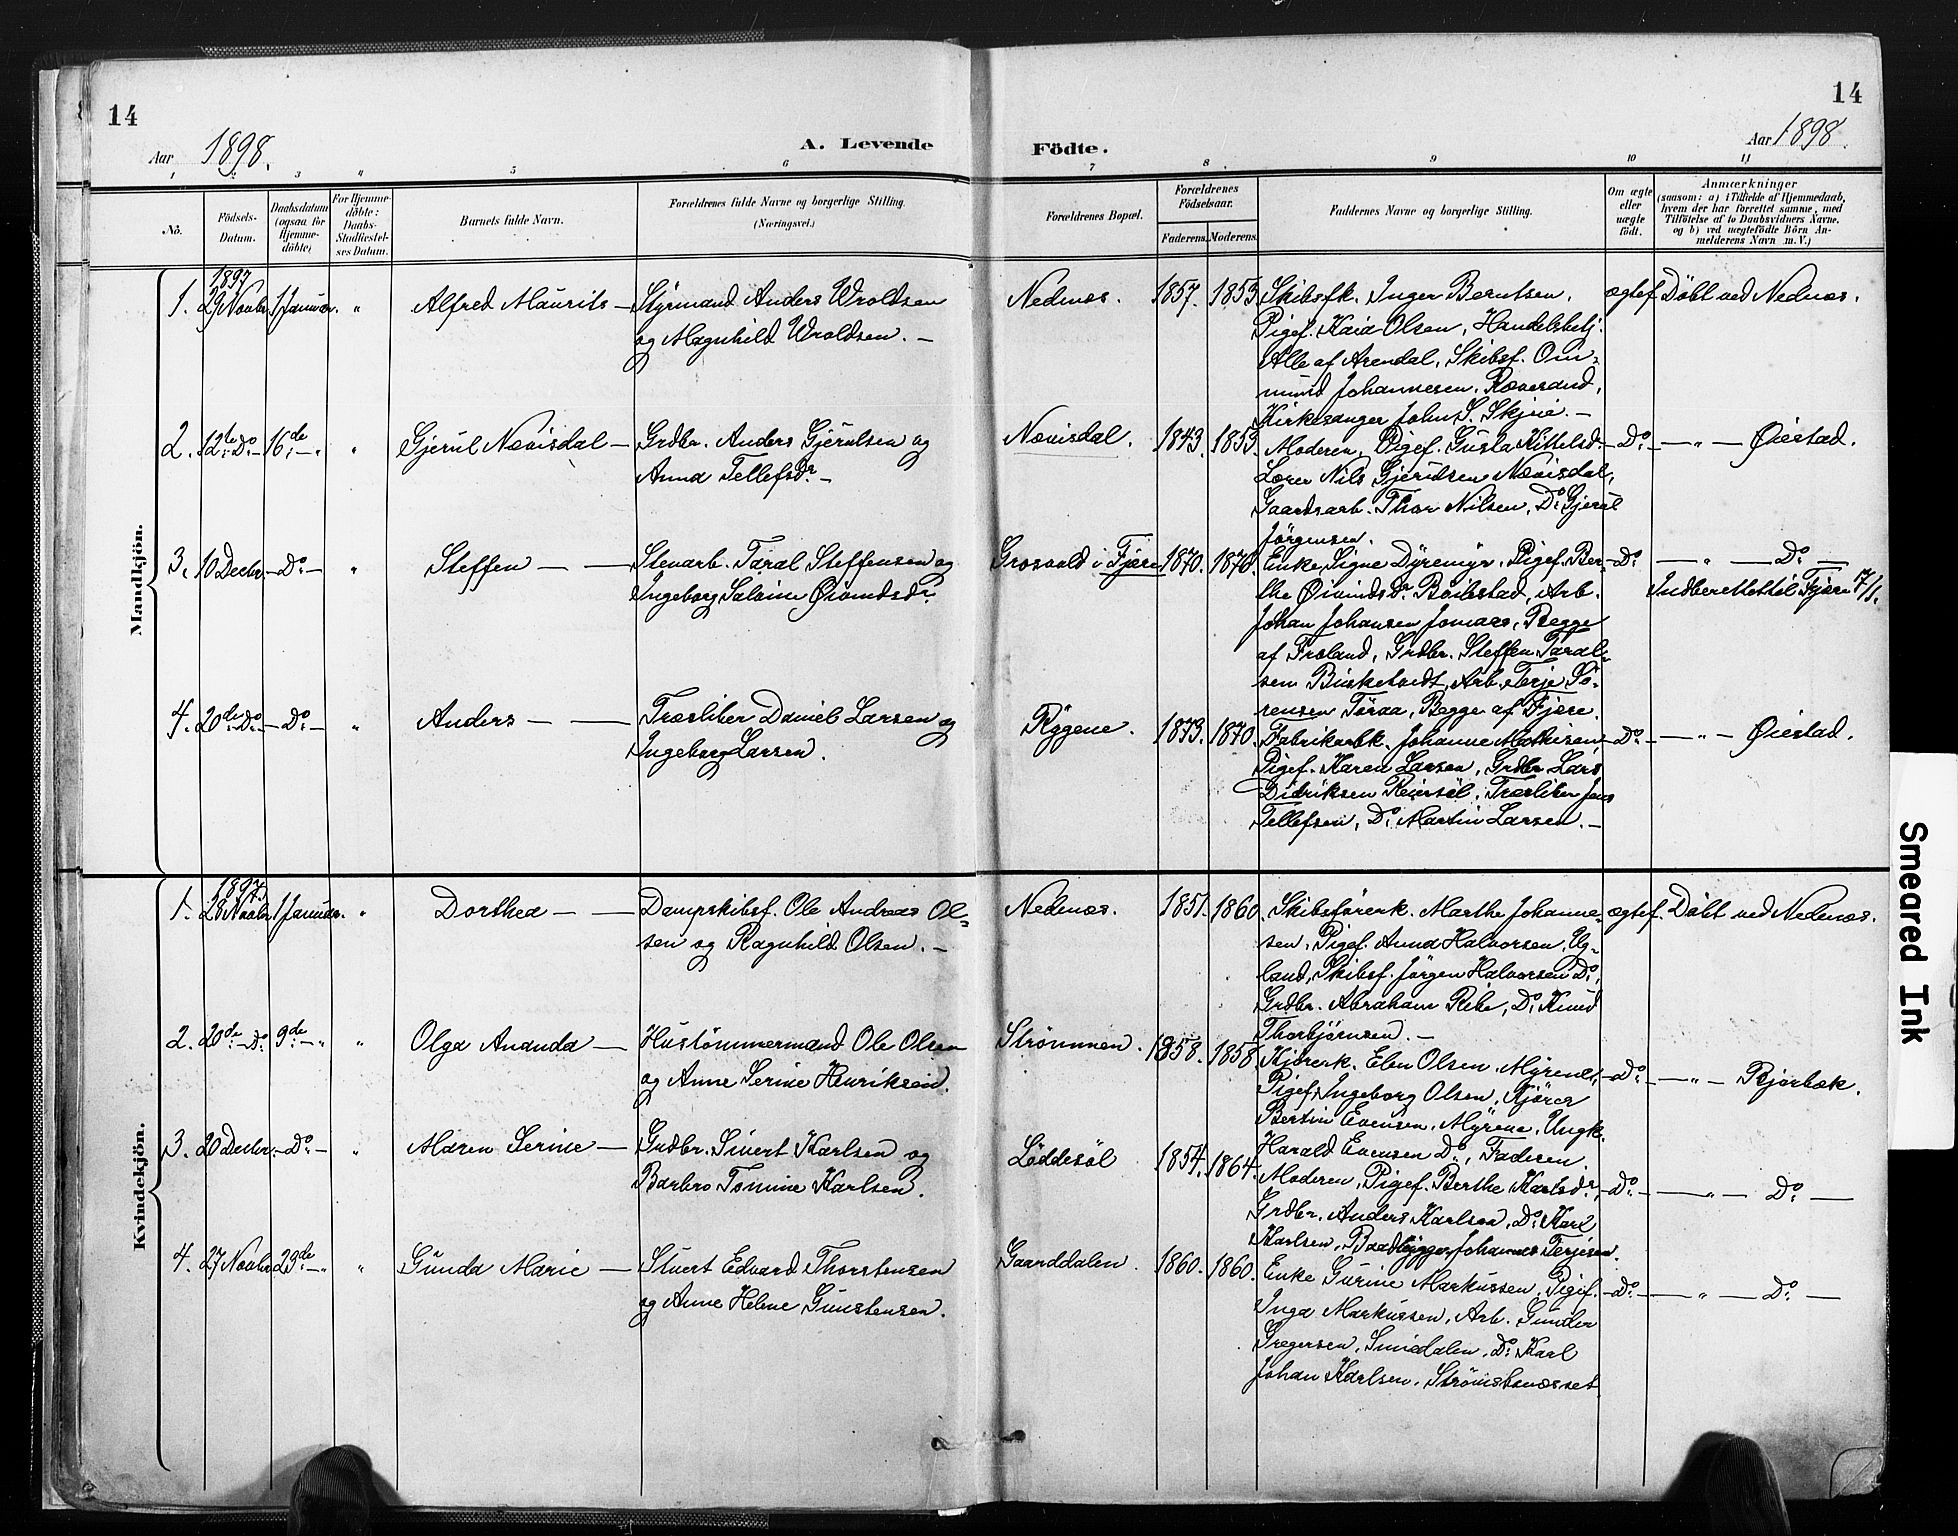 14
14
Aar 1898.
A. Levende Födte.
Aar 1898.
1 2 3 " 5 6 7 8 9 10 11
No.
Födsels-Datum.
Daabsdatum (ogsaa for Hjemmedöbte)
For Hjemmedöbte: Daabs-Stadfæstelses Datum.
Barnets fulde Navn.
Forældrenes fulde Navne og borgerlige Stilling. (Næringsvei.)
Forældrenes Bopæl.
Forældrenes Födselsaar.
Faderens. Moderens.
Faddernes Navne og borgerlige Stilling.
Om ægte eller uægte födt.
Anmærkninger
(saasom: a) i Tilfælde af Hjemmedaab,
hvem der har forrettet samme, med
Tilföielse af to Daabsvidners Navne.
og b) ved uægtefödte Börn An-
melderens Navn m. V.)
Mandkjön.
1897
1. 29 Novbr 1 Januar. " Alfred Maurits — Styrmand Anders Wroldsen
og Magnhild Wroldsen. —
Nednæs. 1857. 1853.
Skibsfk. Inger Berntsen,
Pigef. Kaia Olsen, Handelsbetj.
Alle af Arendal, Skibsf. Om-
mund Johannesen, Ræversand,
Kirkesanger John S. Skjeie. —
ægtef. Döbt ved Nednæs.
2. 12te Do — 16de — " " Gjerul Nævisdal — Grdbr. Anders Gjerulsen og
Anna Tellefsdr. —
Nævisdal. 1843. 1853.
Moderen, Pigef. Gusta Kittelsd.
Lærer Nils Gjerulsen Nævisdal,
Gaardsarb. Thor Nilsen, Do Gjerul
Jörgensen.
— Do — — " — Øiestad.
3. 10 Decbr. — Do — " Steffen — — Stenarb. Taral Steffensen og
Ingeborg Salvine Øivindsdr.
Grosvold i Fjære 1870. 1870.
Enke Signe Dyremyr, Pigef. Ber-
the Øivindsdr. Boilestad, Arb.
Johan Johansen Jomaas, Begge
af Froland, Grdbr. Steffen Taral-
sen Birketvedt, Arb. Terje Sö-
rensen Töraa, Begge af Fjære.
— Do — " — Do —
Indberettet til Fjære 7/1.
4. 20de Do — — Do — " Anders — — Træsliber Daniel Larsen og
Ingeborg Larsen.
Rygene. 1873. 1870.
Fabrikarbk. Johanne Mathisen
Pigef. Karen Larsen, Grdbr Lars
Didriksen Reiersöl, Træsliber Jens
Tellefsen, Do Martin Larsen. —
— Do — — " — Øiestad.
Kvindekjön.
1897
1. 28 Novbr 1 Januar. " Dorthea — — Dampskibsf. Ole Andreas Ol-
sen og Ragnhild Olsen. —
Nednæs. 1851. 1860.
Skibsförerk. Marthe Johanne-
sen, Pigef. Anna Halvorsen, Ug-
land, Skibsf. Jörgen Halvorsen Do,
Grdbr. Abraham Ribe, Do Knud
Thorbjörnsen. —
ægtef. Döbt ved Nednæs.
2. 20de — Do 9de — " " Olga Ananda — Hustömmermand Ole Olsen
og Anne Serine Henriksen.
Strömmen. 1858. 1858.
Kjörerk. Elen Olsen, Myrene,
Pigef. Ingeborg Olsen, Kjörer
Bertin Evensen, Myrene, Ungk.
Harald Evensen Do, Faderen.
— Do — — " — Bjorbæk.
3. 20 Decbr. — Do — " Maren Serine — Grdbr. Sivert Karlsen og
Barbro Tomine Karlsen.
Löddesöl 1854. 1864.
Moderen, Pigef. Berthe Karlsdr,
Grdbr. Anders Karlsen, Do Karl
Karlsen, Baadbygger Johannes Terjesen.
— Do — — " — Do —
4. 27 Novbr 23de — " " Gunda Marie — Sivert Edvard Thorstensen
og Anne Helene Gunstensen.
Gaarddalen. 1860. 1860.
Enke Gurine Markussen, Pigef.
Inga Markussen, Arb. Gunder
Gregersen, Smedalen, Do Karl
Johan Karlsen, Strömsbunæsset
— Do — — " — Do —
Smeared Ink